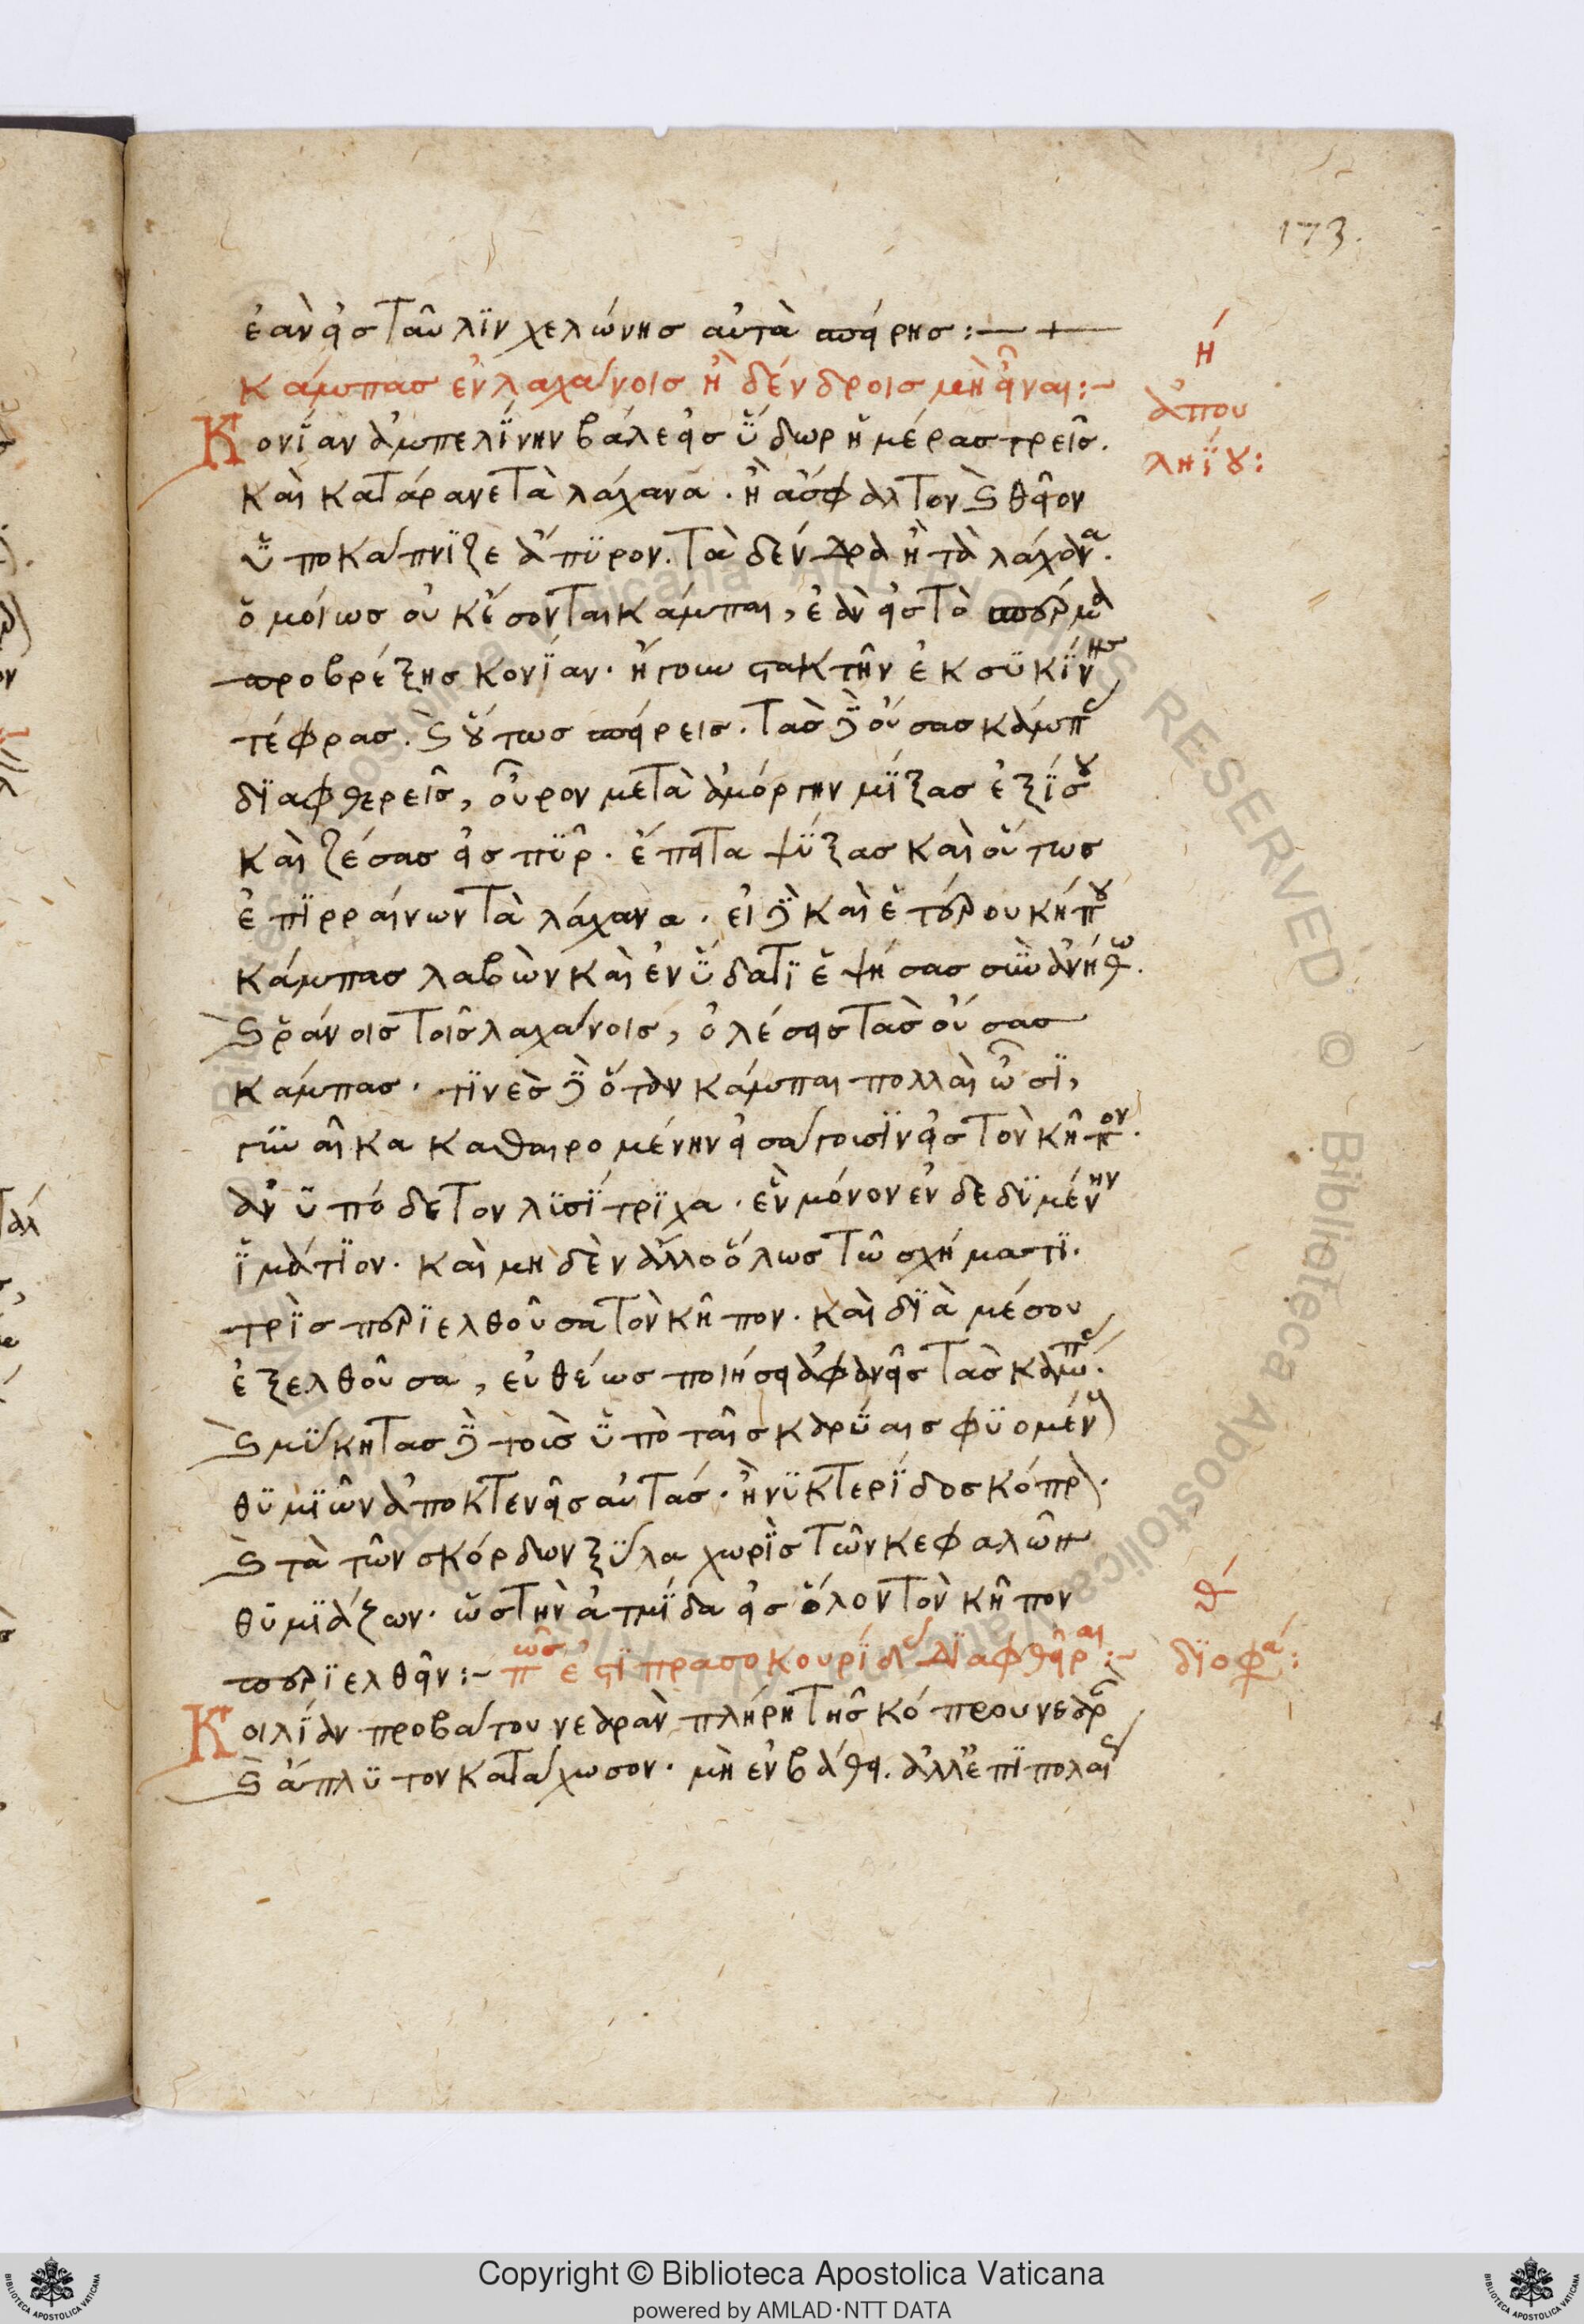 173.
ἐὰν εἰς ταῦλιν χελώνης αὐτὰ σπείρης :— +
Κάμπας ἐν λαχάνοις ἢ δένδροις μὴ εἶναι :~
η΄
ἀπου
ληΐου :
Κονίαν ἀμπελίνην βάλε εἰς ὕδωρ ἡμέρας τρεῖς.
καὶ κατάρανε τὰ λάχανα . ἢ ἄσφαλτον καὶ θεῖον
ὑποκάπνιζε ἄπυρον. τὰ δένδρα ἢ τὰ λάχανα.
ὁμοίως οὐκ ἔσονται κάμπαι, ἐὰν εἰς τὸ σπέρμα
προβρέξης κονίαν. ἤγουν στακτὴν ἐκ συκίνης
τέφρας. καὶ οὕτως σπείρεις. τὰς δὲ οὔσας κάμπας
διαφθερεῖς, οὖρον μετὰ ἀμόργην μίξας ἐξίσου
καὶ ζέσας εἰς πῦρ. ἔπειτα ψύξας καὶ οὕτως
ἐπιρραίνων τὰ λάχανα. εἰ δὲ καὶ ἑτέρου κήπου
κάμπας λαβὼν καὶ ἐν ὕδατι ἑψήσας σὺν ἀνήθω.
καὶ ῥάνοις τοῖς λαχάνοις, ὀλέσεις τὰς οὔσας
κάμπας. τινὲς δὲ ὅταν κάμπαι πολλαὶ ὦσι,
γυναῖκα καθαιρομένην εἰσάγουσιν εἰς τὸν κῆπον.
ἀνυπόδετον λυσίτριχα. ἓν μόνον ἐνδεδυμένην
ἱμάτιον. καὶ μηδὲν ἄλλο ὅλως τῶ σχήματι.
τρὶς περιελθοῦσα τὸν κῆπον. καὶ διὰ μέσου
ἐξελθοῦσα, εὐθέως ποιήσει ἀφανεῖς τὰς κάμπας.
καὶ μύκητας δὲ τοὺς ὑπὸ ταῖς καρύαις φυομένους
θυμιῶν ἀποκτενεῖς αὐτάς. ἢ νυκτερίδος κόπρον.
καὶ τὰ τῶν σκόρδων ξύλα χωρὶς τῶν κεφαλῶν
θυμιάζων. ὡς τὴν ἀτμίδα εἰς ὅλον τὸν κῆπον
θ΄
περιελθεῖν :~ πῶς ἐστι πρασοκουρίδας διαφθεῖραι :~
διοφά :
Κοιλίαν προβάτου νεαρὰν πλήρη τῆς κόπρου νεαρᾶς
καὶ ἄπλυτον κατάχωσον. μὴ ἐν βάθει. ἀλλ' ἐπιπολαίως
Copyright © Biblioteca Apostolica Vaticana
powered by AMLAD·NTT DATA